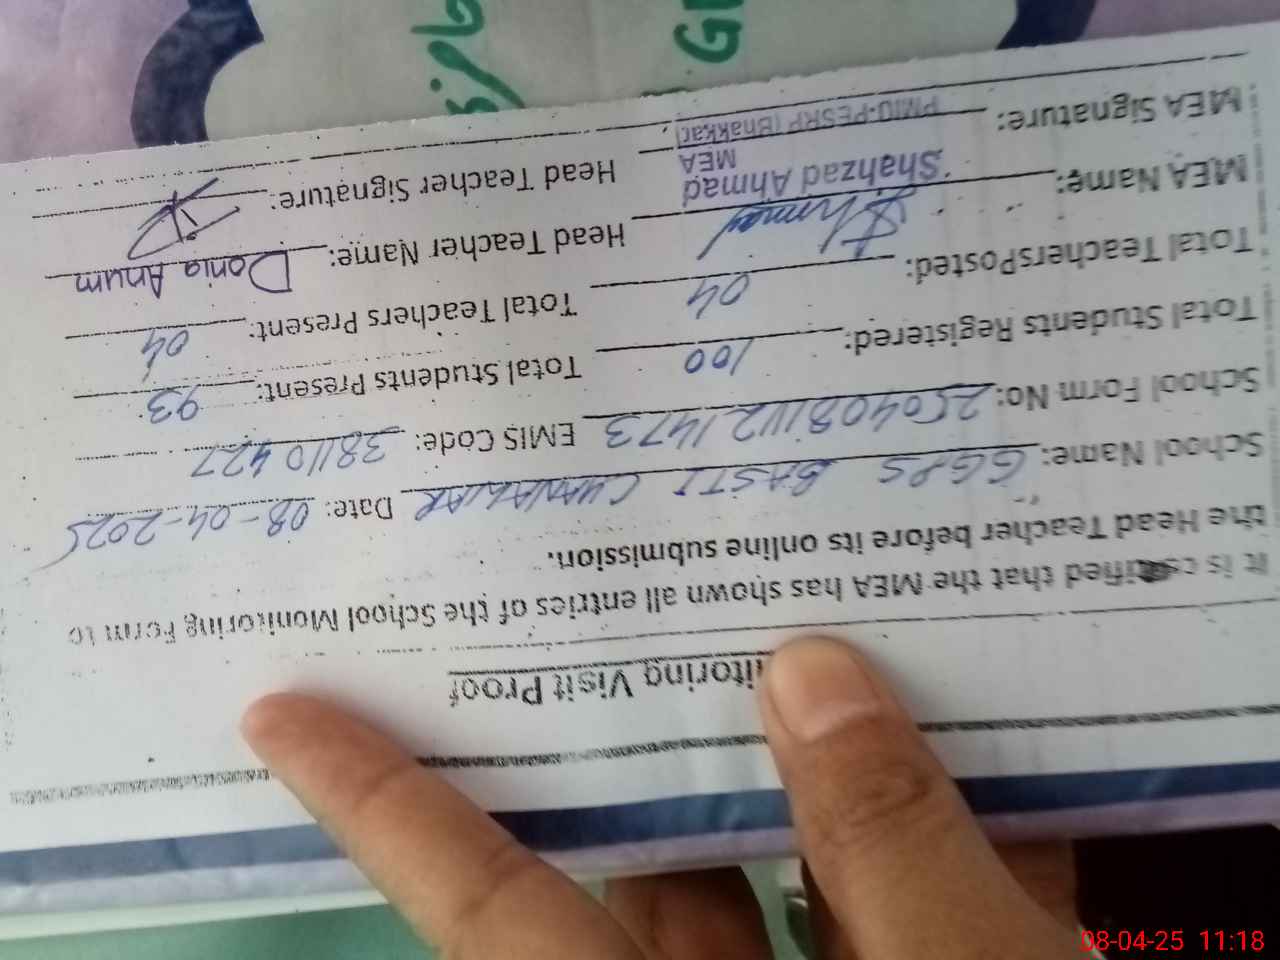 Monitoring Visit Proof
It is certified that the MEA has shown all entries of the School Monitoring Form to
the Head Teacher before its online submission.
School Name: GGPS BASTI CHANANAR Date: 08-04-2025
School Form No: 250408112 1473 EMIS Code: 38110427
Total Students Registered: 100 Total Students Present: 93
Total TeachersPosted: 04 Total Teachers Present: 04
MEA Name: Head Teacher Name: Dania Anum
Shahzad Ahmad
MEA
PMIU-PESRP (Bhakkar)
MEA Signature: Head Teacher Signature:
08-04-25 11:18